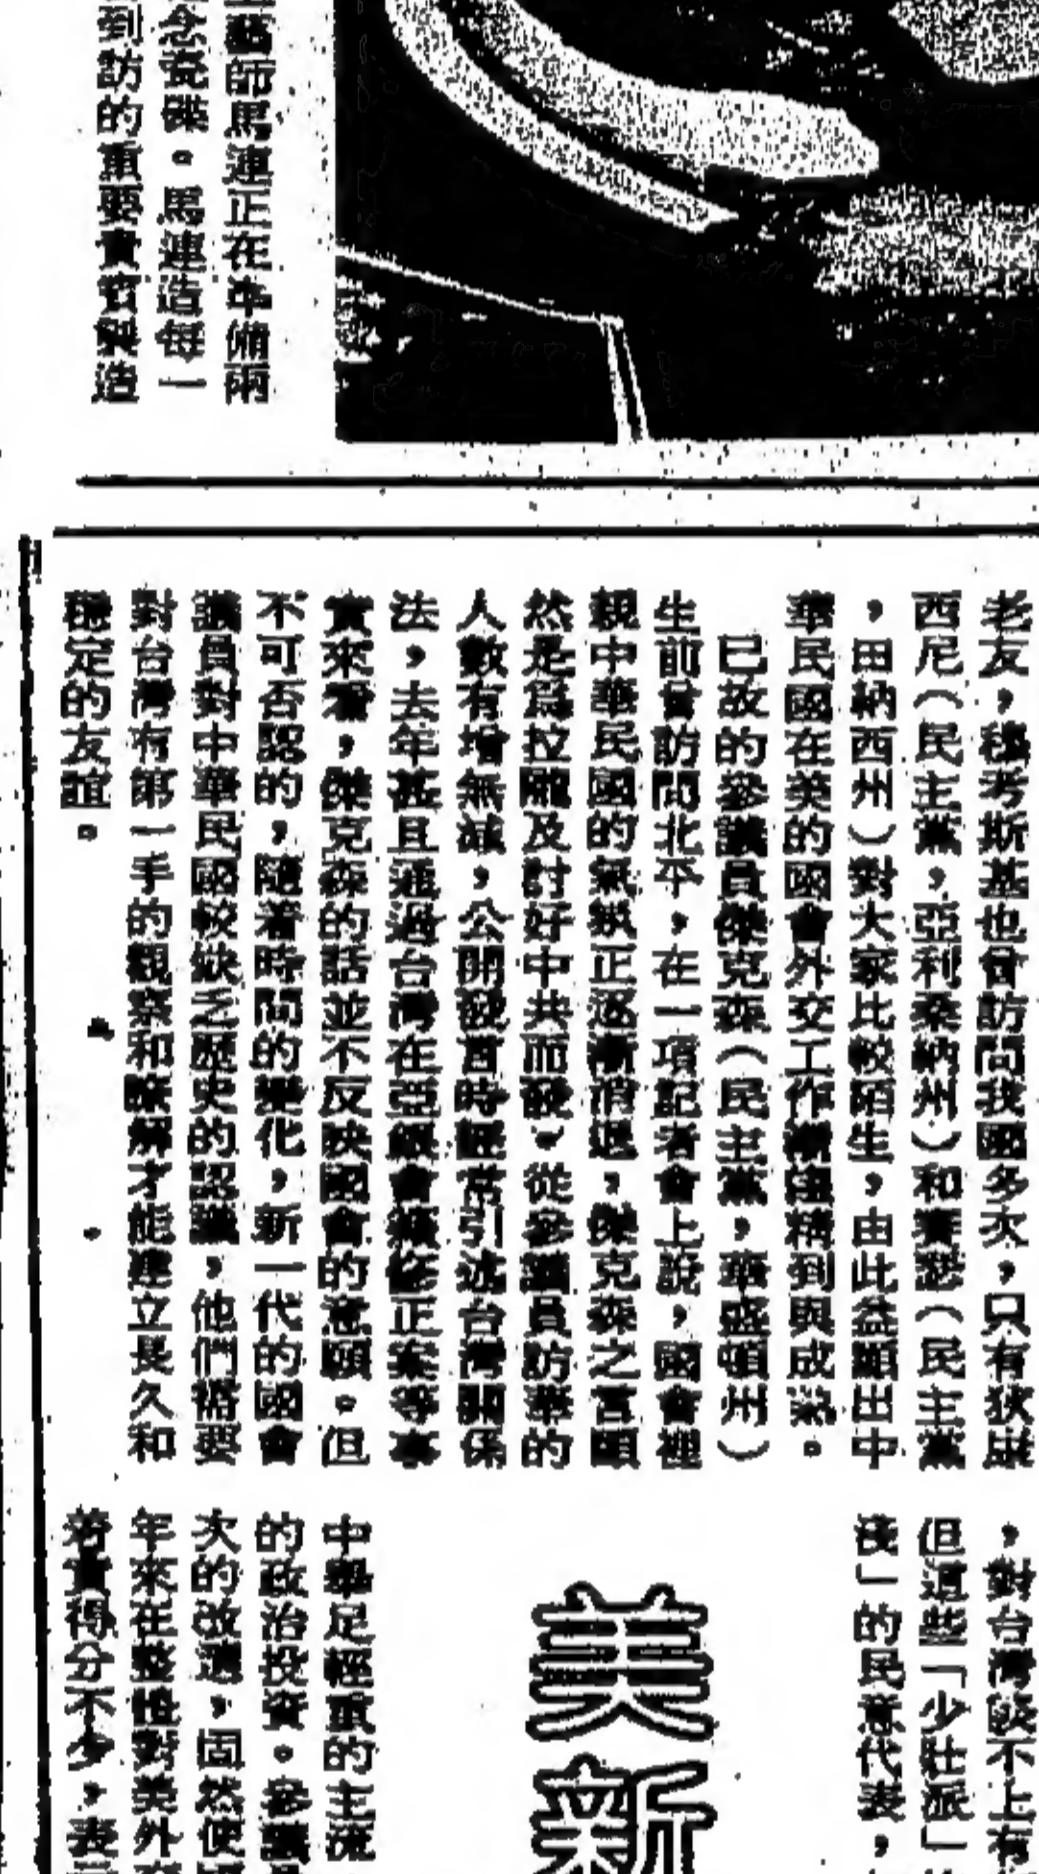 藝師馬連正在準備兩
念瓷碟。馬連造每一
到訪的重要貴賓製造
老友,穆考斯基也曾訪問我國多次,只有狄康
西尼(民主黨,亞利桑納州)和賽瑟(民主黨
,田納西州)對大家比較陌生,由此益顯出中
華民國在美的國會外交工作續密精到與成熟。
已故的參議員傑克森(民主黨,華盛頓州)
生前曾訪問北平,在一項記者會上說,國會裡
親中華民國的氣氛正逐漸消退,傑克森之言顯
然是爲拉攏及討好中共而發。從參議員訪華的
人數有增無減,公開發言時經常引述台灣關係
法,去年甚且通過台灣在亞銀會籍修正案等事
實來看,傑克森的話並不反映國會的意願。但
不可否認的,隨着時間的變化,新一代的國會
議員對中華民國較缺乏歷史的認識,他們需要
對台灣有第一手的觀察和瞭解才能建立長久和
穩定的友誼。
,對台灣談不上有
但這些「少壯派」
後」的民意代表,
美新
中舉足輕重的主流
的政治投資。參議
次的改選,固然使
年來在整體對美外
着實得分不少,表